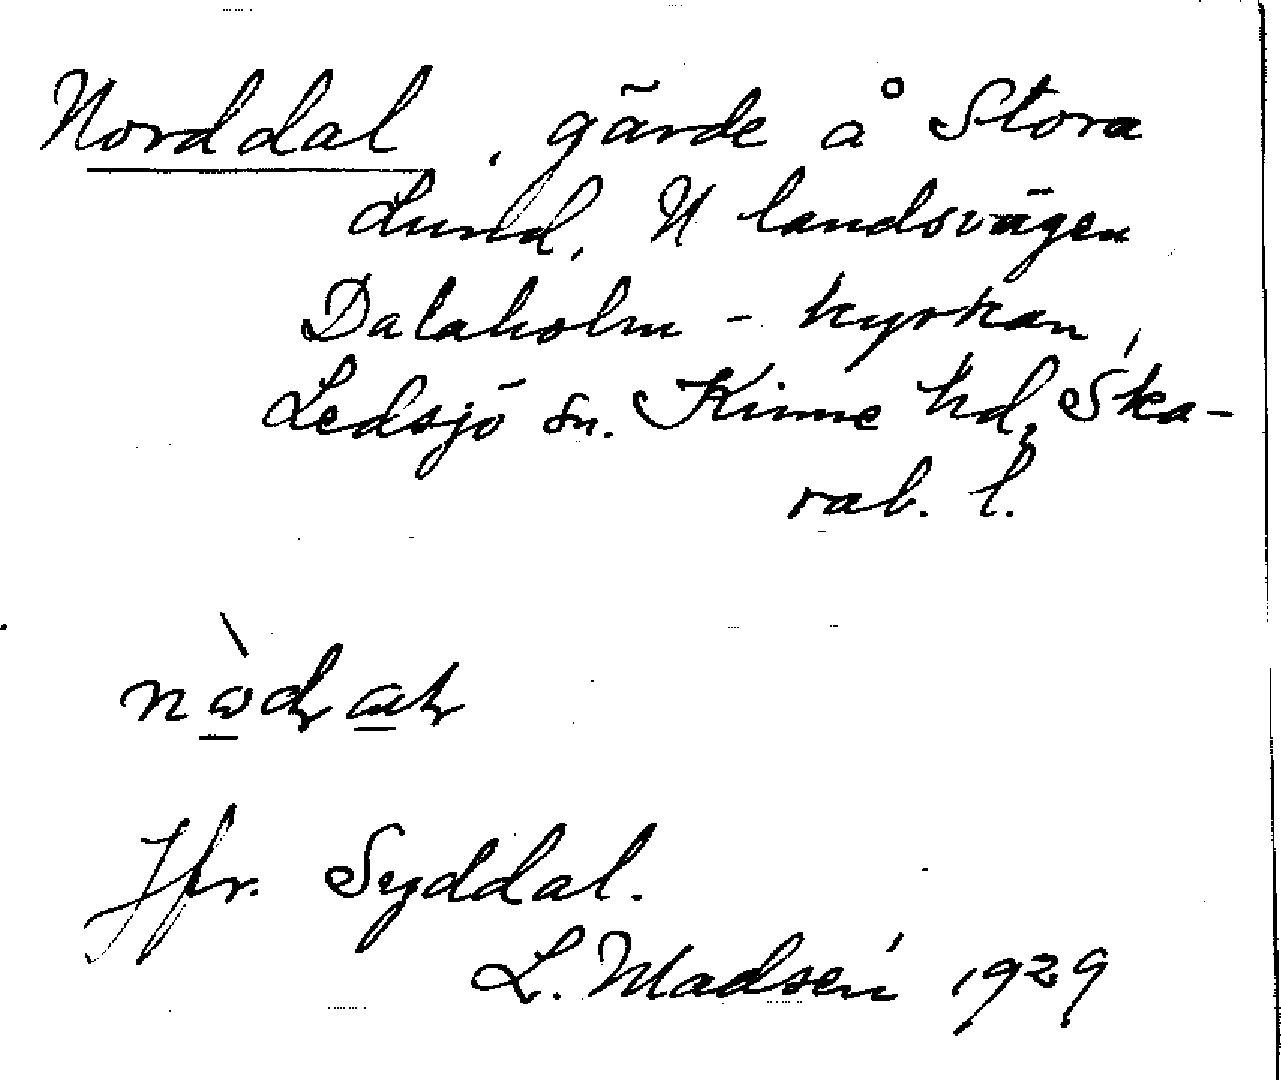 Norddal, gärde å Stora
Lund, N landsvägen
Dalaholm - kyrkan,
Ledsjö sn. Kinne hd, Ska-
rab. l.
Jfr. Syddal.
L. Madsén 1929